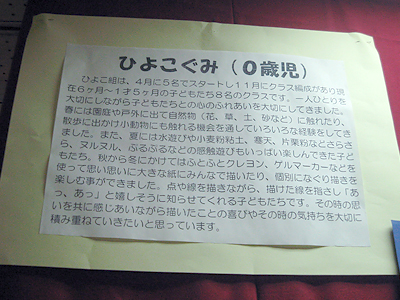 ひよこぐみ（０歳児）
ひよこ組は、４月に５名でスタートし１１月にクラス編成があり現
在６ヶ月～１才５ヶ月の子どもたち８名のクラスです。一人ひとりを
大切にしながら子どもたちとの心のふれあいを大切にしてきました。
春には園庭や戸外に出て自然物（花、草、土、砂など）に触れたり、
散歩に出かけ小動物にも触れる機会を通していろいろな経験をしてき
ました。また、夏には水遊びや小麦粉粘土、寒天、片栗粉などさらさ
ら、ヌルヌル、ぷるぷるなどの感触遊びもいっぱい楽しんできた子ど
もたち。秋から冬にかけてはふとふとクレヨン、ゲルマーカーなどを
使って思い思いに大きな紙にみんなで描いたり、個別になぐり描きを
楽しむ事ができました。点や線を描きながら、描けた線を指さし「あ
っ、あっ」と嬉しそうに知らせてくれる子どもたちです。その時の思
いを共に感じあいながら描いたことの喜びやその時の気持ちを大切に
積み重ねていきたいと思っています。